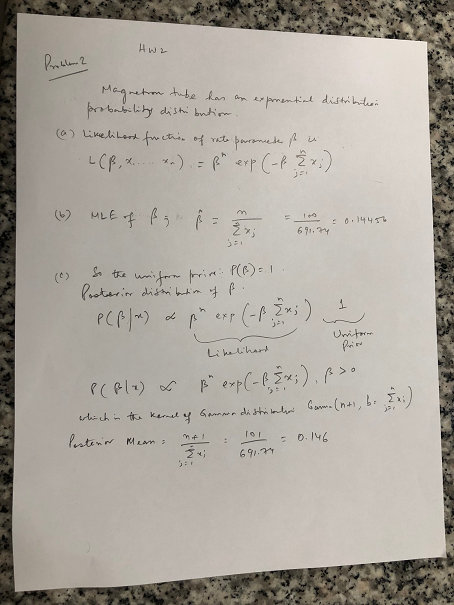 HW2
Problem 2
Magnetron tube has an exponential distribution
probability distribution.
(a) Likelihood function of rate parameter β is
L(β, x, .... xn) = βⁿ exp(-β Σⁿⱼ₌₁ xⱼ)
(b) MLE of β ; β̂ = n / Σⁿⱼ₌₁ xⱼ = 100 / 691.74 = 0.14456
(c) So the uniform prior: P(β) = 1.
Posterior distribution of β.
P(β|x) ∝ βⁿ exp(-β Σⁿⱼ₌₁ xⱼ) 1
Likelihood
Uniform
Prior
P(β|x) ∝ βⁿ exp(-β Σⁿⱼ₌₁ xⱼ), β > 0
which is the kernel of Gamma distribution Gamma(n+1, b = Σⁿⱼ₌₁ xⱼ)
Posterior Mean = n+1 / Σⁿⱼ₌₁ xⱼ = 101 / 691.74 = 0.146